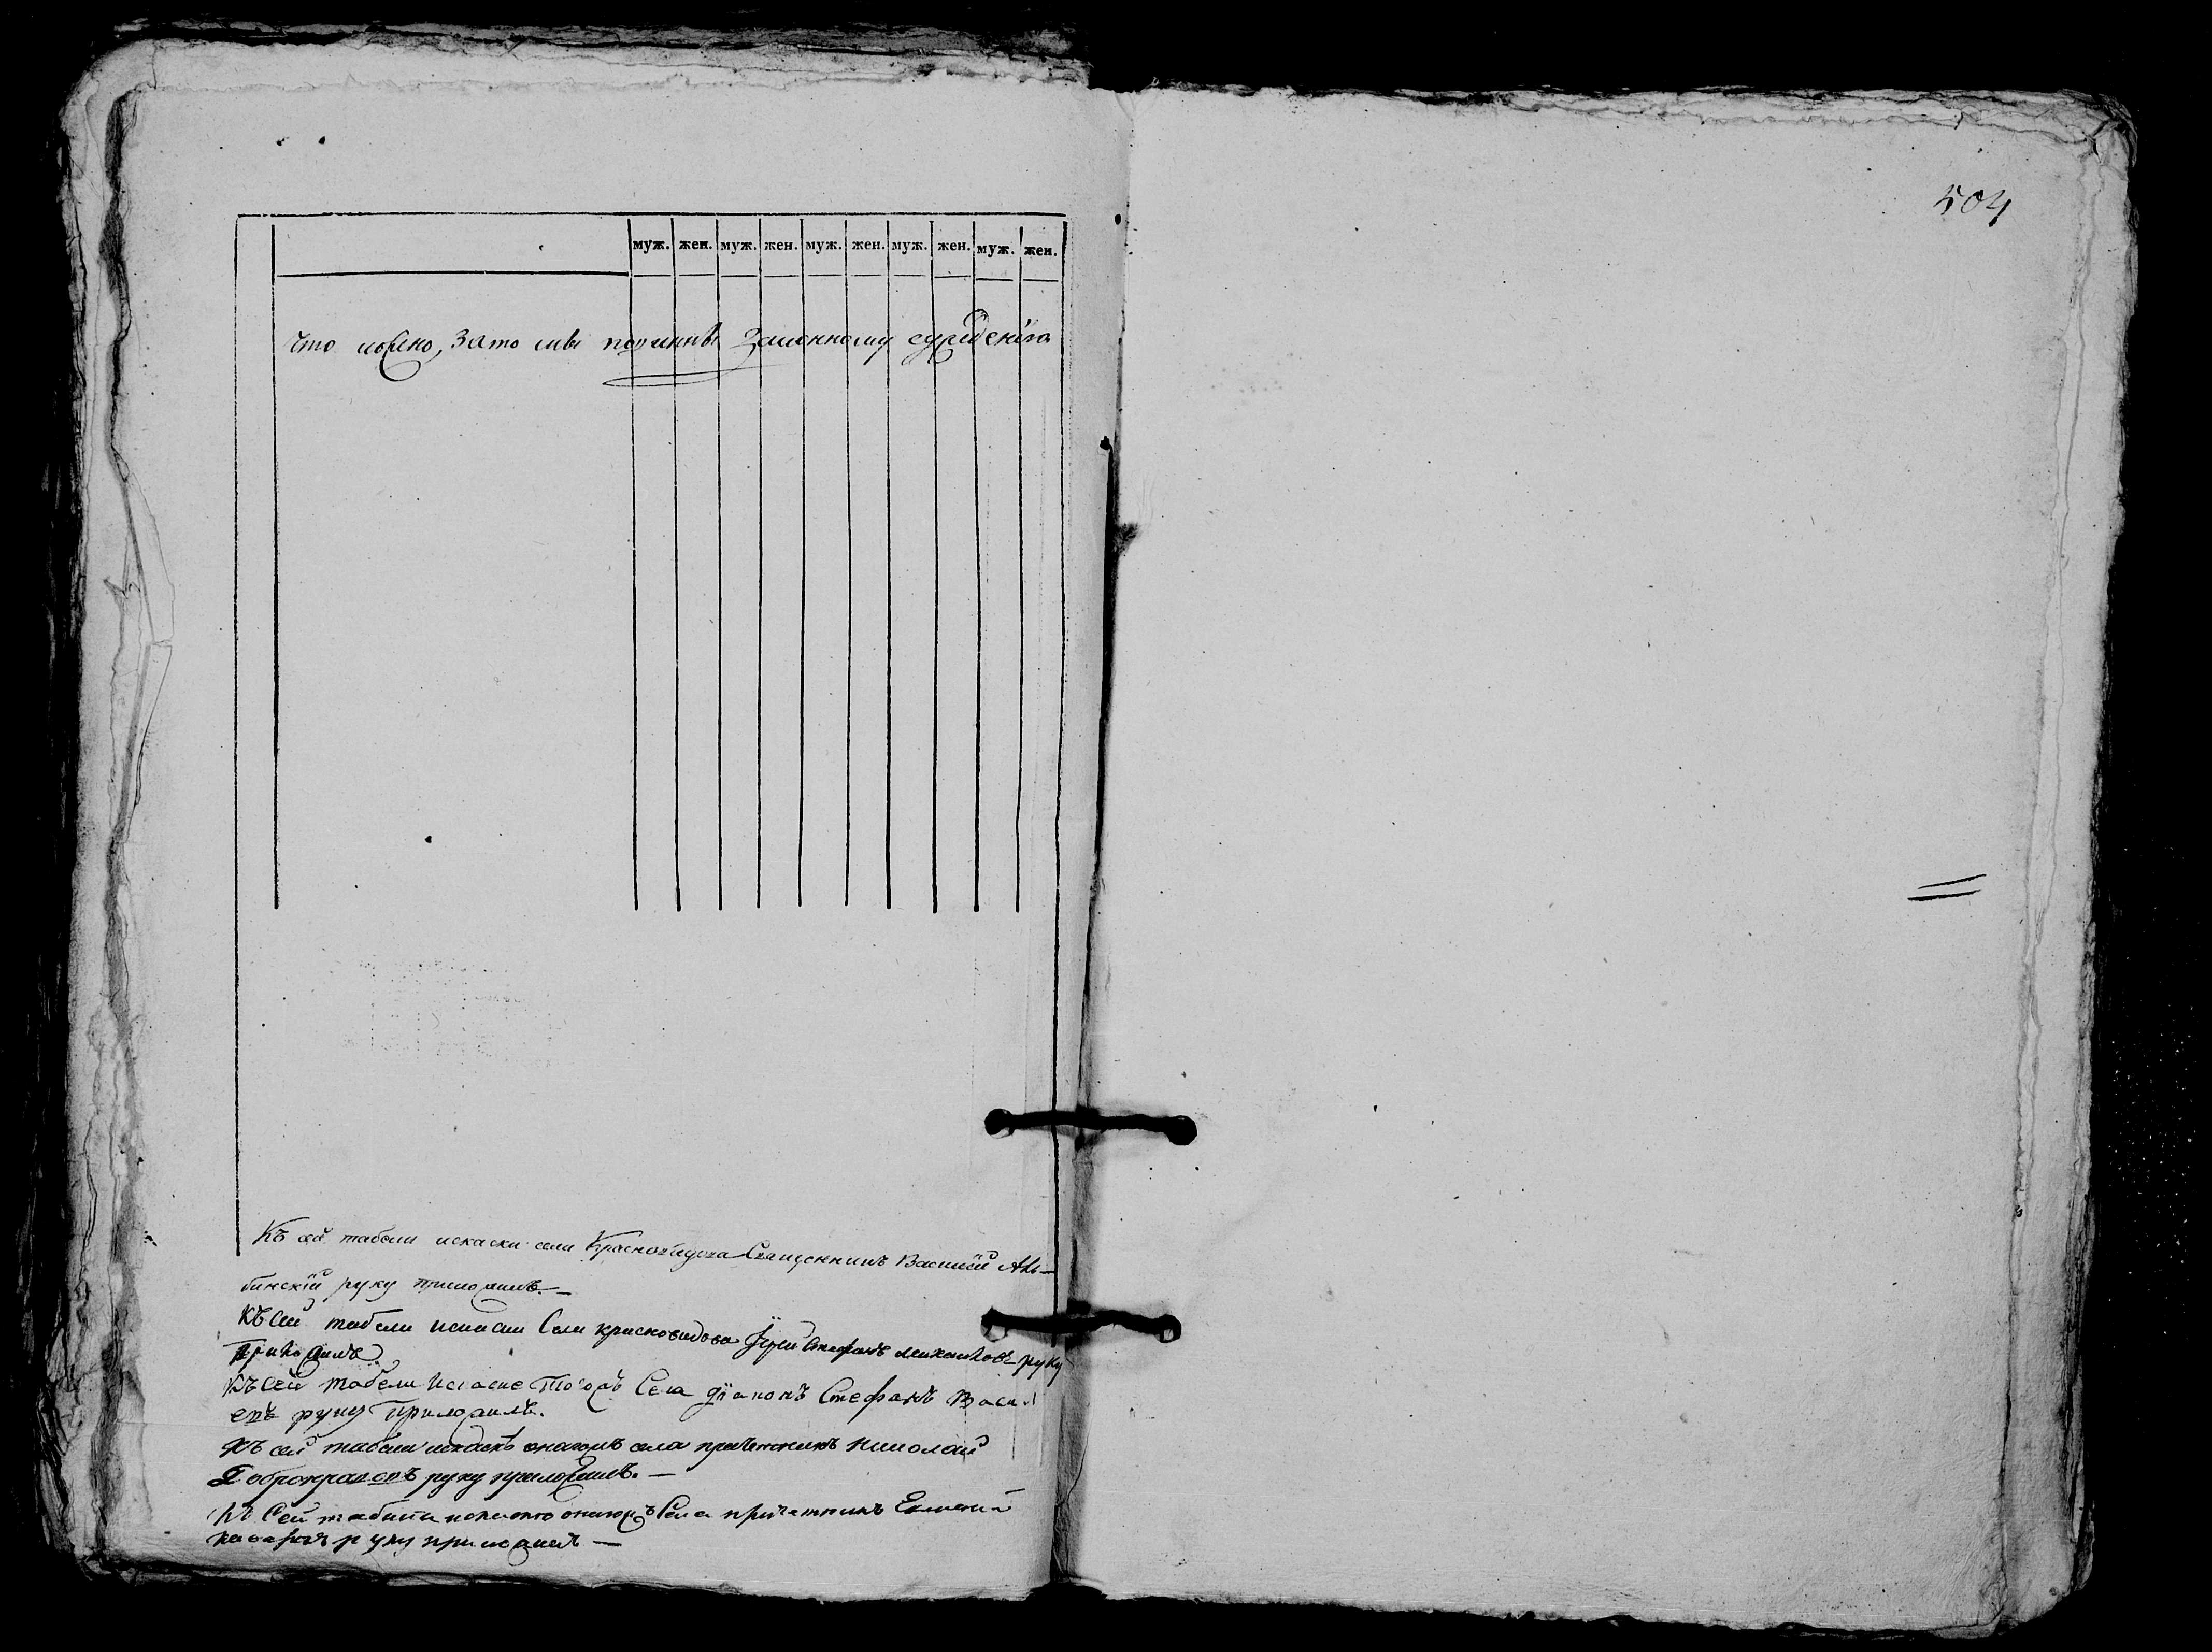 504
муж. жен. муж. жен. муж. жен. муж. жен. муж. жен.
что ложно, за то мы повинны законному суждению
Къ сей табели и скаски села Красновидова Священникъ Василий Аль-
бинскій руку приложилъ.—
Къ сей табели и скаски Села красновидова Іерей Стефанъ Михайловъ руку
Приложилъ
Къ сей табели И скаске Тогожъ Села діаконъ Стефанъ Васил
евъ руку Приложилъ.
Къ сей табели и скаскѣ онагожъ села причетникъ Николай
Доброхрановъ руку приложилъ.—
Къ Сей табели и онагожъ Села причетникъ
руку приложилъ —